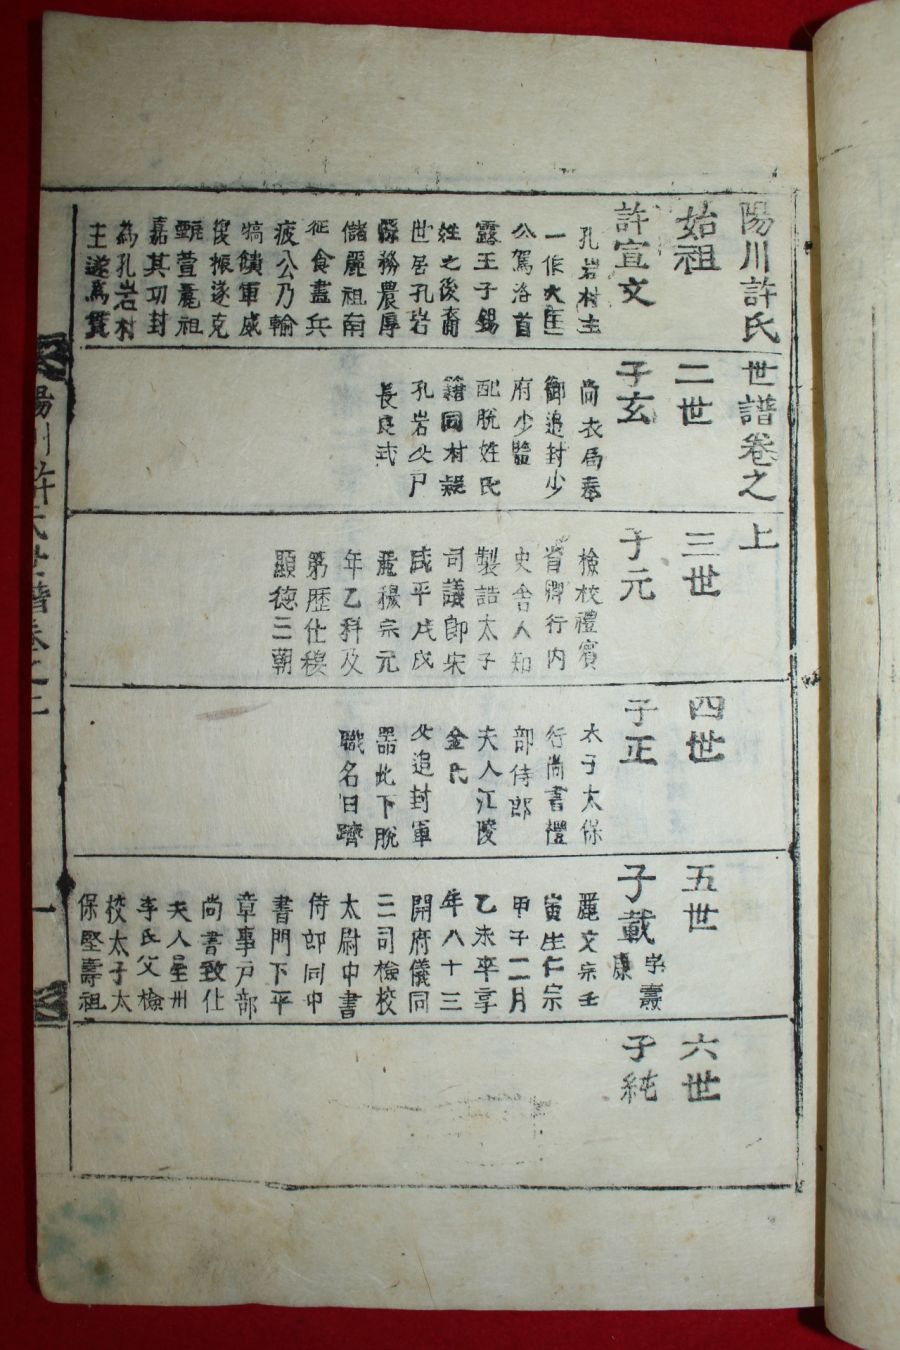 陽川許氏世譜卷之上
始祖
許宣文
孔岩村主
一作大匡
公駕洛首
露王子錫
姓之後裔
世居孔岩
縣務農厚
儲麗祖南
征食盡兵
疲公乃輸
犒饋軍威
復振遂克
甄萱麗祖
嘉其功封
為孔岩村
主遂爲貫
二世
子玄
尚衣局奉
御追封少
府少監
配脫姓氏
籍同村疑
孔岩公戶
長良式
三世
子元
檢校禮賓
省卿行內
史舍人知
製誥太子
司議郎宋
咸平戊戌
麗穆宗元
年乙科及
第歷仕穆
顯德三朝
四世
子正
太子太保
行尚書禮
部侍郎
夫人江陵
金氏
父追封軍
器此下脫
職名曰躋
五世
子載
字壽康
麗文宗壬
寅生仁宗
甲子二月
乙未卒享
年八十三
開府儀同
三司檢校
太尉中書
侍郎同中
書門下平
章事戶部
尚書致仕
夫人星州
李氏父檢
校太子太
保堅壽祖
六世
子純
陽川許氏世譜卷之上
一